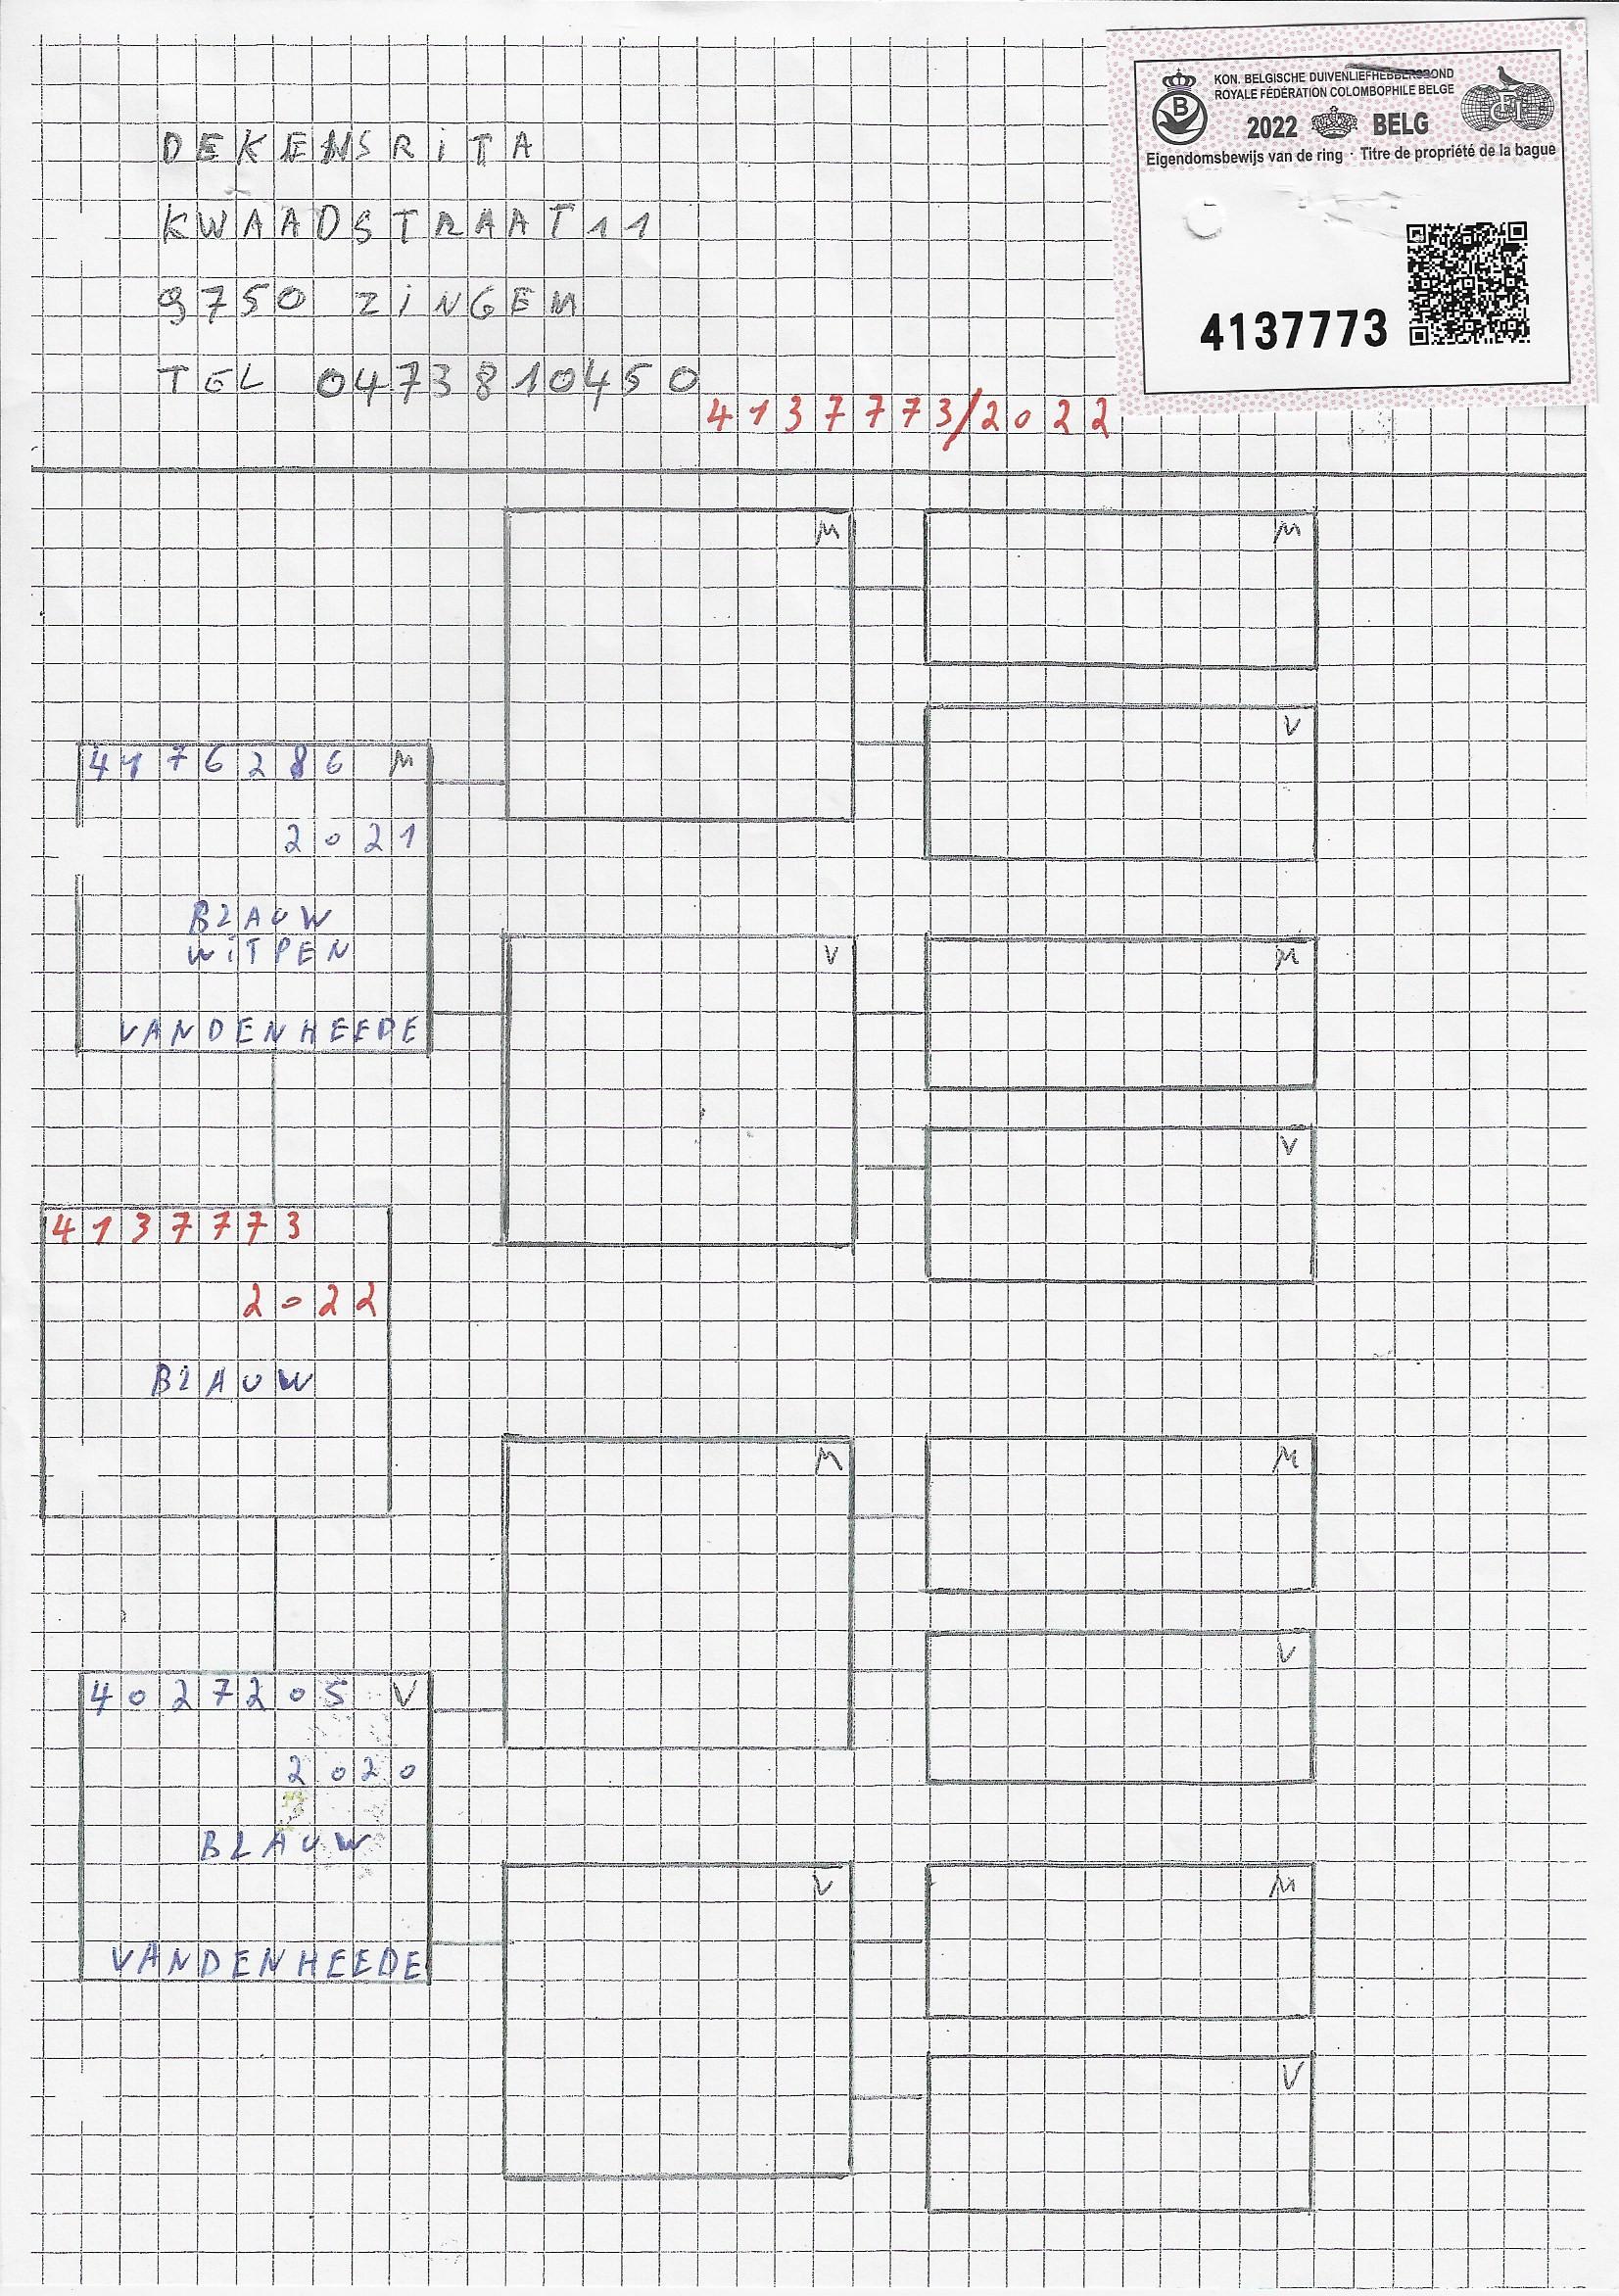 KON. BELGISCHE DUIVENLIEFHEBBERSBOND
ROYALE FÉDÉRATION COLOMBOPHILE BELGE
B
FCI
2022 BELG
Eigendomsbewijs van de ring · Titre de propriété de la bague
4137773
DEKENS RiTA
KWAADSTRAAT 11
9750 ZiNGEM
TEL 0473810450
4137773/2022
M
M
V
4176286 M
2021
BLAUW
WiTPEN
VANDENHEEDE
V
M
V
4137773
2022
BLAUW
M
M
V
4027205 V
2020
BLAUW
VANDENHEEDE
V
M
V